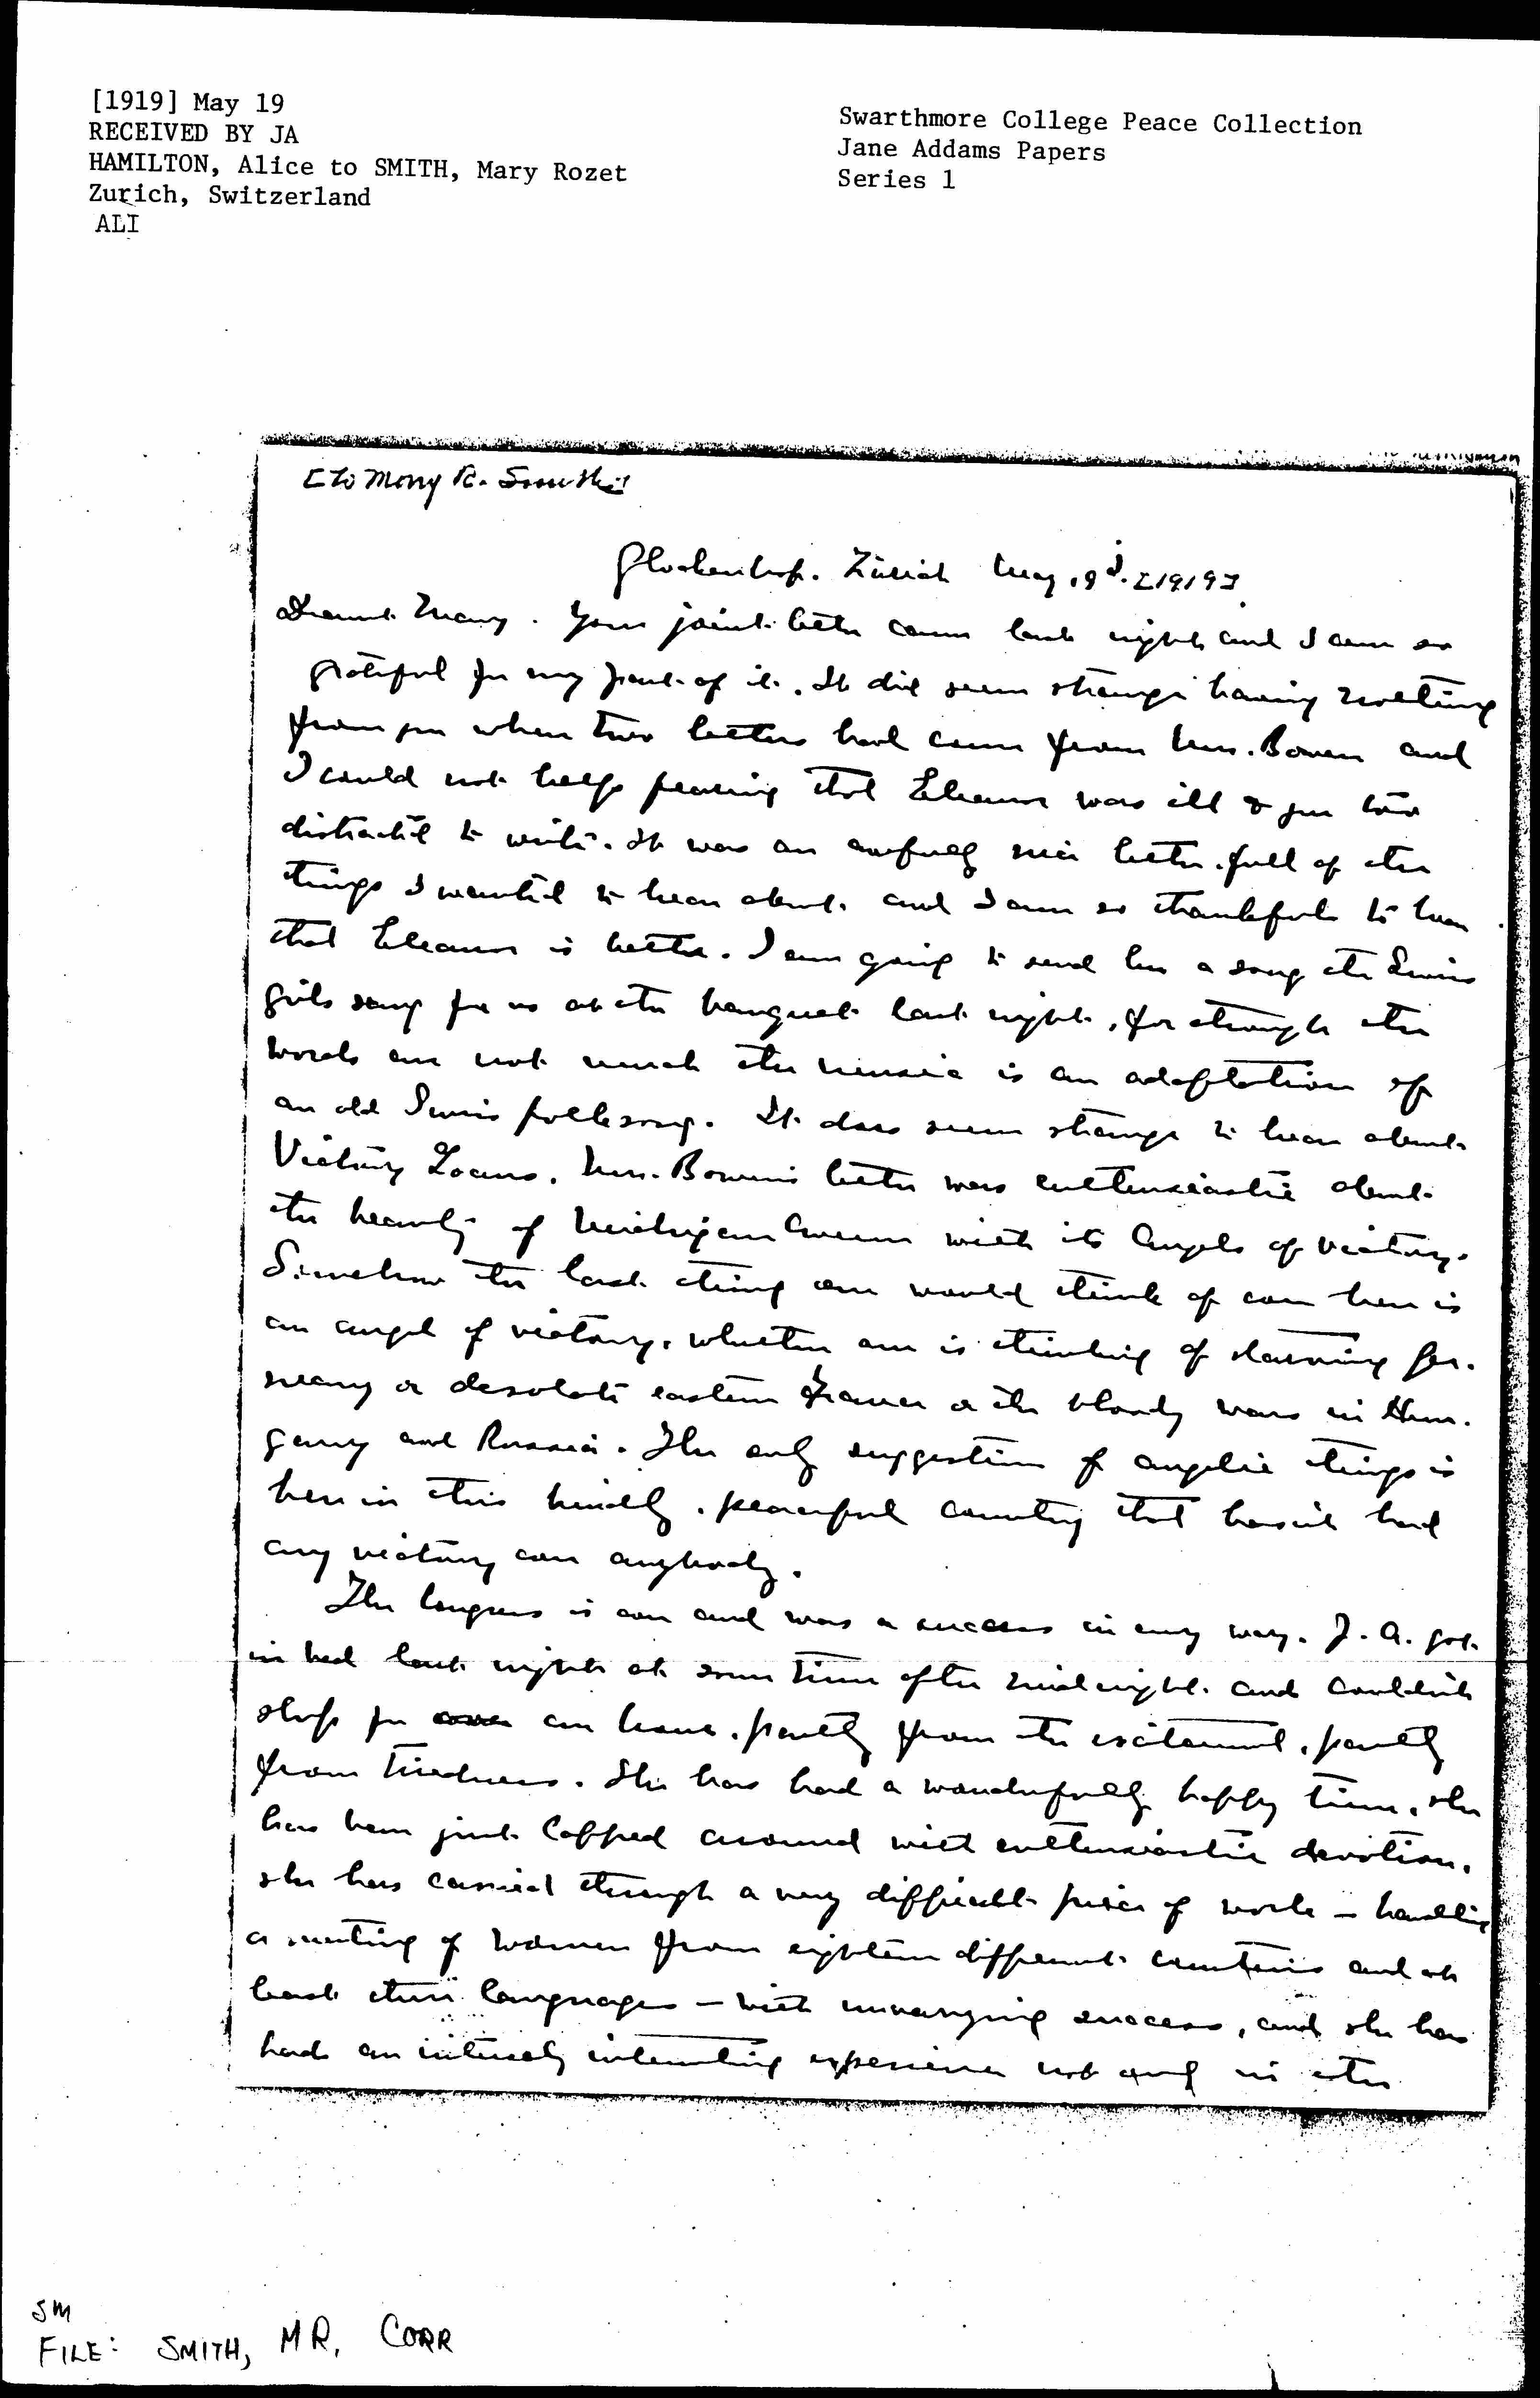 [1919] May 19
RECEIVED BY JA
HAMILTON, Alice to SMITH, Mary Rozet
Zurich, Switzerland
ALI
Swarthmore College Peace Collection
Jane Addams Papers
Series 1
[to Mary R. Smith]
Glockenhof. Zürich May 19th. [1919]
Dearest Mary. Your joint letter came last night and I am so
grateful for my part of it. It did seem strange having nothing
from you when two letters had come from Mrs. Bowen and
I could not help fearing that Eleanor was ill & you too
distracted to write. It was an awfully nice letter, full of the
things I wanted to hear about. and I am so thankful to hear
that Eleanor is better. I am going to send her a song the Swiss
girls sang for us at the banquet last night, for though the
words are not much the music is an adaptation of
an old Swiss folksong. It does seem strange to hear about
Victory Loans. Mrs. Bowen's letter was enthusiastic about
the beauty of Michigan Avenue with its Angels of Victory.
Somehow the last thing one would think of over here is
an angel of victory, whether one is thinking of starving Ger-
many or desolate eastern France or the bloody wars in Hun-
gary and Russia. The only suggestion of angelic things is
here in this kindly, peaceful country that hasn't had
any victory over anybody.
The Congress is over and was a success in every way. J. A. got
in bed last night at some time after midnight and couldn't
sleep for over an hour, partly from the excitement, partly
from tiredness. She has had a wonderfully happy time, she
has been just lapped around with enthusiastic devotion,
she has carried through a very difficult piece of work – handling
a meeting of women from eighteen different countries and at
least three languages – with unvarying success, and she has
had an intensely interesting experience not only in the
SM
FILE: SMITH, MR, CORR